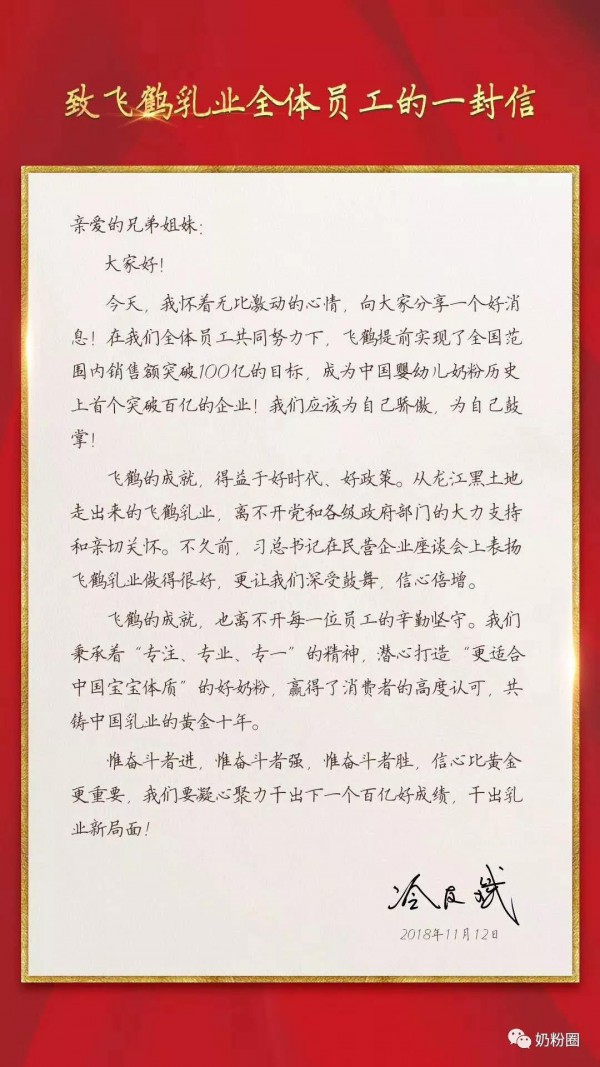 致飞鹤乳业全体员工的一封信
亲爱的兄弟姐妹：
大家好！
今天，我怀着无比激动的心情，向大家分享一个好消
息！在我们全体员工共同努力下，飞鹤提前实现了全国范
围内销售额突破100亿的目标，成为中国婴幼儿奶粉历史
上首个突破百亿的企业！我们应该为自己骄傲，为自己鼓
掌！
飞鹤的成就，得益于好时代、好政策。从龙江黑土地
走出来的飞鹤乳业，离不开党和各级政府部门的大力支持
和亲切关怀。不久前，习总书记在民营企业座谈会上表扬
飞鹤乳业做得很好，更让我们深受鼓舞，信心倍增。
飞鹤的成就，也离不开每一位员工的辛勤坚守。我们
秉承着“专注、专业、专一”的精神，潜心打造“更适合
中国宝宝体质”的好奶粉，赢得了消费者的高度认可，共
铸中国乳业的黄金十年。
惟奋斗者进，惟奋斗者强，惟奋斗者胜，信心比黄金
更重要，我们要凝心聚力干出下一个百亿好成绩，干出乳
业新局面！
冷友斌
2018年11月12日
奶粉圈